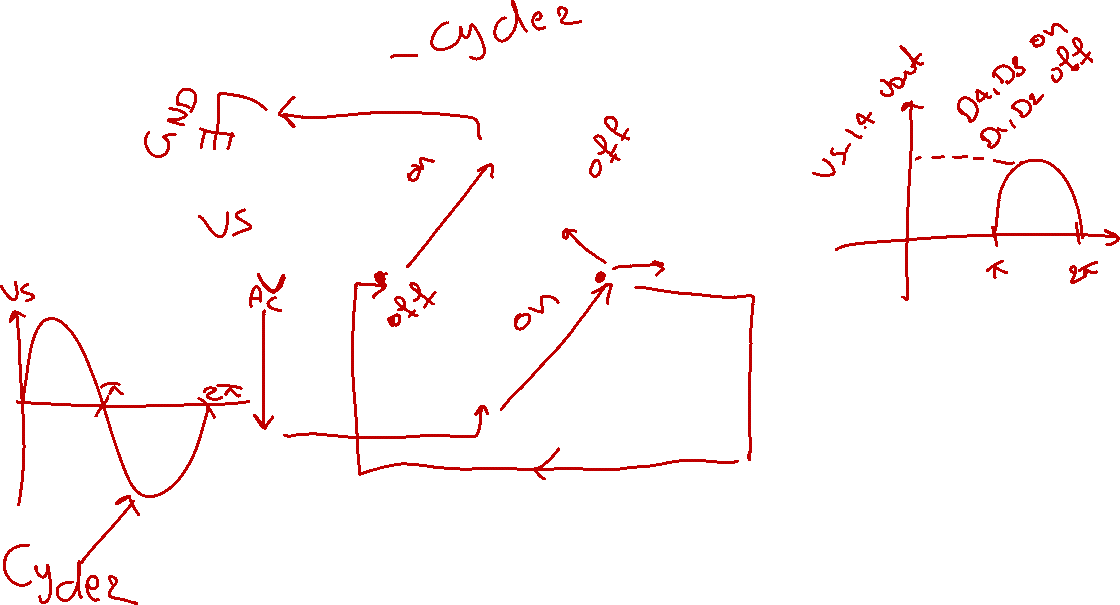 - Cycle2
GND
on
off
VS
AC
off
on
VS
π
2π
Cycle2
Vout
VS-1.4
D4,D3 on
D1,D2 off
π
2π